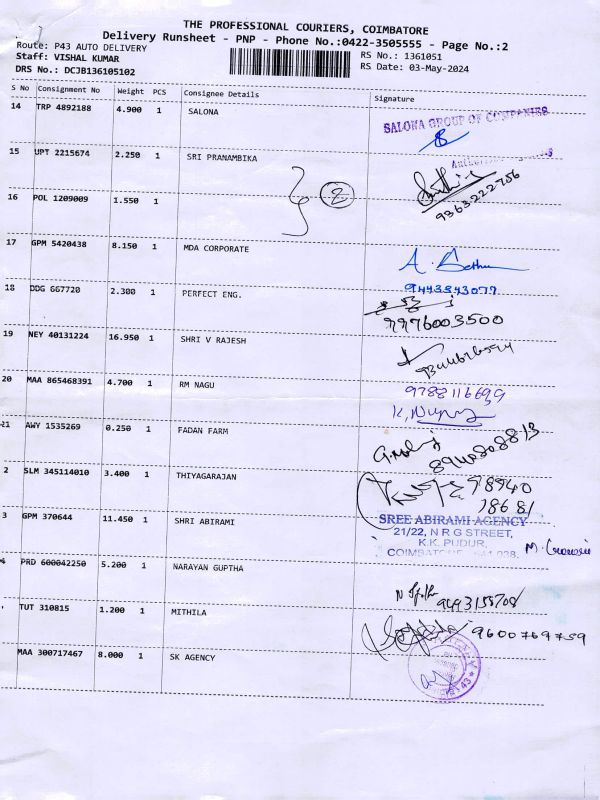 THE PROFESSIONAL COURIERS, COIMBATORE
Delivery Runsheet - PNP - Phone No.:0422-3505555 - Page No.:2
Route: P43 AUTO DELIVERY RS No.: 1361051
Staff: VISHAL KUMAR RS Date: 03-May-2024
DRS No.: DCJB136105102
S No Consignment No Weight PCS Consignee Details Signature
14 TRP 4892188 4.900 1 SALONA SALONA GROUP OF COMPANIES
15 UPT 2215674 2.250 1 SRI PRANAMBIKA
9363222756
16 POL 1209009 1.550 1 2
17 GPM 5420438 8.150 1 MDA CORPORATE A.
9443843077
18 DDG 667720 2.300 1 PERFECT ENG.
9976003500
19 NEY 40131224 16.950 1 SHRI V RAJESH
20 MAA 865468391 4.700 1 RM NAGU 9788116699
21 AWY 1535269 0.250 1 FADAN FARM
8940808813
2 SLM 345114010 3.400 1 THIYAGARAJAN 98940
18681
3 GPM 370644 11.450 1 SHRI ABIRAMI SREE ABIRAMI AGENCY
21/22, N R G STREET,
K.K. PUDUR,
COIMBATORE - 641 038.
4 PRD 600042250 5.200 1 NARAYAN GUPTHA
9443155708
TUT 310815 1.200 1 MITHILA 9600769759
MAA 300717467 8.000 1 SK AGENCY